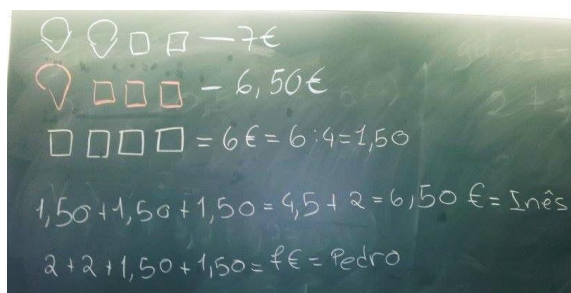 — 7€
— 6,50€
= 6€ = 6:4=1,50
1,50+1,50+1,50=4,5+2=6,50€=Inês
2+2+1,50+1,50=7€=Pedro